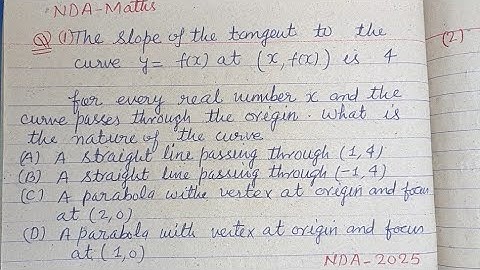 NDA-Maths
Q (1) The slope of the tangent to the (2)
curve y = f(x) at (x, f(x)) is 4
for every real number x and the
curve passes through the origin. What is
the nature of the curve
(A) A straight line passing through (1,4)
(B) A straight line passing through (-1,4)
(C) A parabola withe vertex at origin and focus
at (2,0)
(D) A parabola with vertex at origin and focus
at (1,0)
NDA-2025